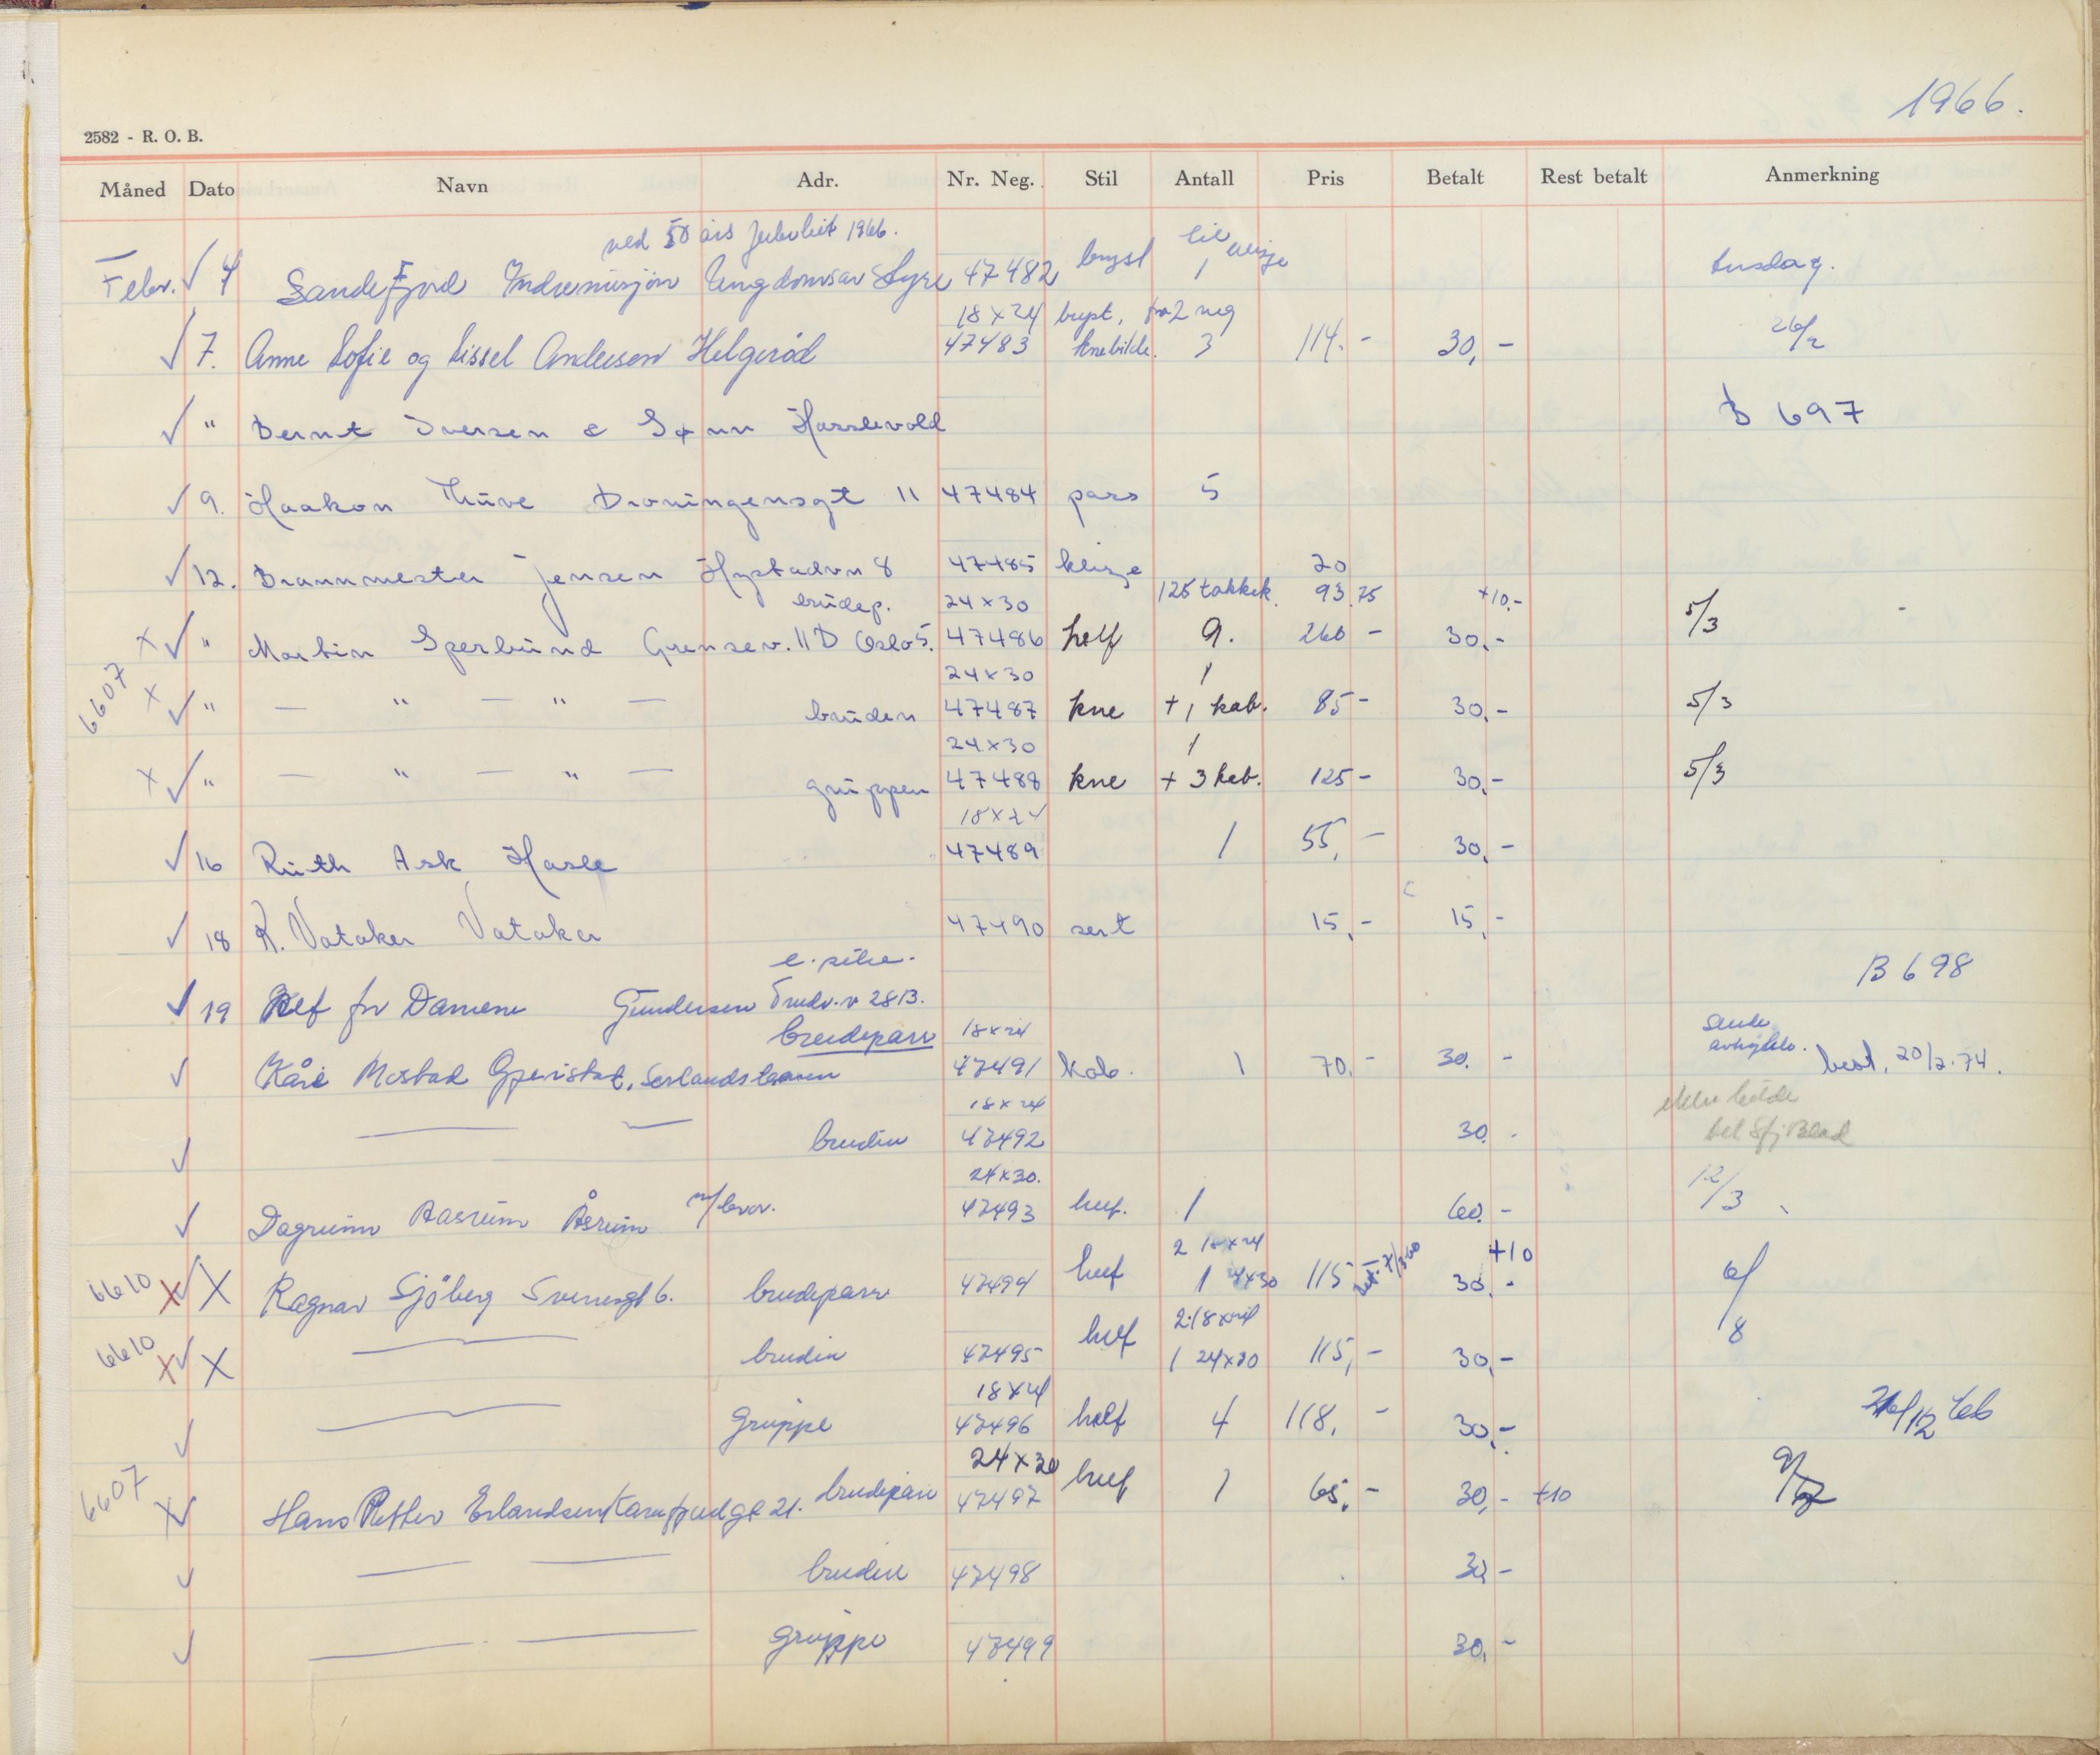 1966.
2582 - R. O. B.
Måned Dato Navn Adr. Nr. Neg. Stil Antall Pris Betalt Rest betalt Anmerkning
ved 50 års 1966.
Febr. ✓ 4 Sandefjord Indremisjon 47482 1 tirsdag.
18x24 fra 2 neg
✓ 7. Anne Sofie og Lissel Andersen Helgerød 47483 knebilde. 3 114.- 30,- 26/2
✓ " Bernt Iversen & Sønn Hasslevold B 697
✓ 9. Haakon Thuve Dronningensgt 11 47484 pass 5
✓ 12. Brannmester Jensen Hystadvn 8 47485 klisje 20
brudep. 24x30 125 takkek. 93.75 +10.-
x ✓ " Martin Sperbund Grensev. 11D Oslo 5. 47486 half 9. 260 - 30.- 5/3
24x30 1
6607 x ✓ " — " — " — bruden 47487 kne + 1 kab. 85 - 30.- 5/3
24x30 1
x ✓ " — " — " — gruppen 47488 kne + 3 kab. 125 - 30.- 5/3
18x24
✓ 16 Ruth Ask Hasle 47489 1 55,- 30,-
✓ 18 K. Vataker Vataker 47490 sert 15,- 15,-
B 698
✓ 19 Ref for Damene Gundersen 28 B.
brudepar 18x24
✓ Kåre 47491 kab. 1 70,- 30.- best. 20/2.74.
18x24
✓ — — bruden 47492 30.
24x30.
✓ Dagrunn Aasrum Åsrum 47493 1 60.- 12/3
2 18x24 +10
6610 x ✓ X Ragnar Sjöberg Sverresgt 6. brudepar 47494 1 24x30 115 30.- 6/8
2 18x24
6610 x ✓ X — bruden 47495 1 24x30 115,- 30,-
18x24
✓ — gruppe 47496 half 4 118,- 30,-
24x30
6607 x ✓ Hans Petter Erlandsen 21. brudepar 47497 1 65,- 30,- +10
✓ — — bruden 47498 30,-
✓ — — gruppe 47499 30,-